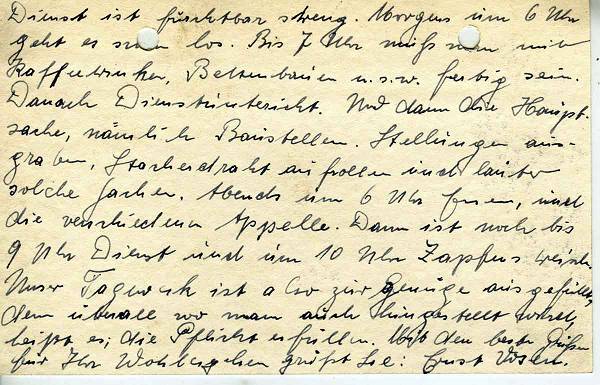 Dienst ist furchtbar streng. Morgens um 6 Uhr
geht es schon los. Bis 7 Uhr muß man mit
Kaffeetrinken, Bettenbauen u.s.w. fertig sein.
Danach Dienstunterricht. Und dann die Haupt-
sache, nämlich Baustellen. Stellungen aus-
graben, Stacheldraht aufrollen und lauter
solche Sachen. Abends um 6 Uhr Essen, und
die verschiedenen Appelle. Dann ist noch bis
9 Uhr Dienst und um 10 Uhr Zapfenstreich.
Unser Tagwerk ist also zur Genüge ausgefüllt,
denn überall wo man auch hingestellt wird,
heißt es; die Pflicht erfüllen. Mit den besten Grüßen
für Ihr Wohlergehen grüßt Sie: Ernst